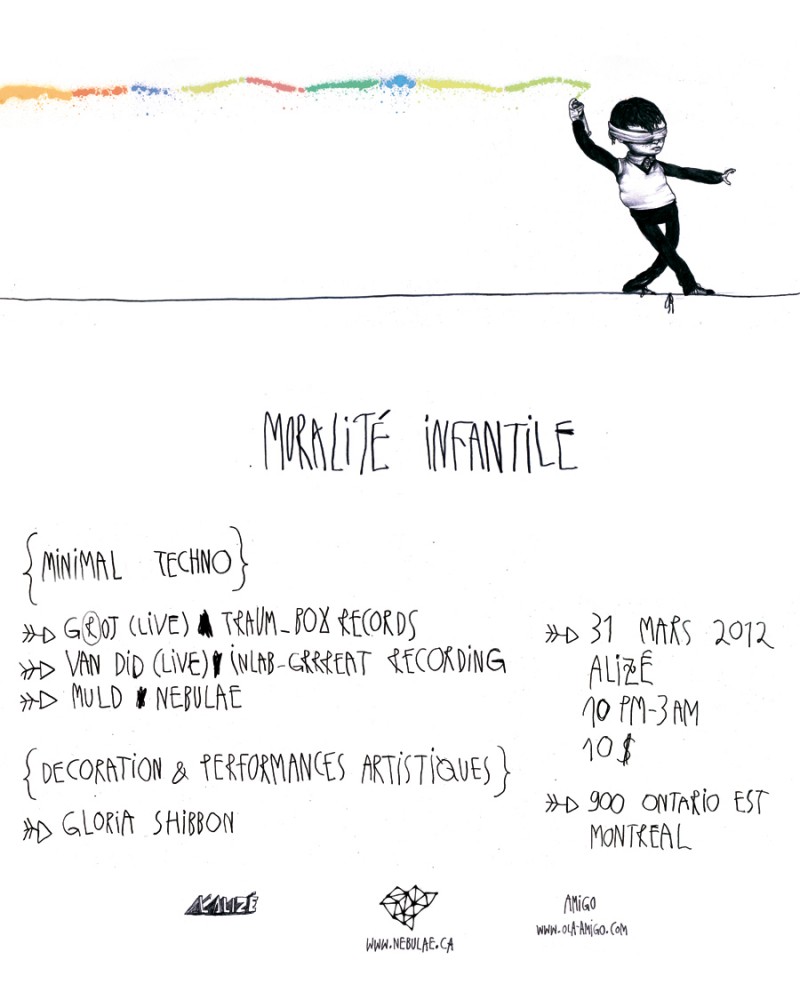 MORALITÉ INFANTILE
{MINIMAL TECHNO}
GROJ (LIVE) TRAUM_BOX RECORDS
VAN DID (LIVE) INLAB-GRRREAT RECORDING
MULD NEBULAE
{DECORATION & PERFORMANCES ARTISTIQUES}
GLORIA SHIBBON
31 MARS 2012
ALIZÉ
10 PM-3 AM
10 $
900 ONTARIO EST
MONTREAL
L'ALIZÉ
WWW.NEBULAE.CA
AMIGO
WWW.OLA-AMIGO.COM